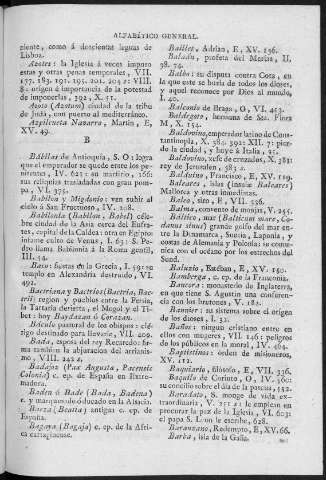 ALFABÉTICO GENERAL.
ciente, como á doscientas leguas de
Lisboa.
Azotes: la Iglesia á veces imputo
estas y otras penas temporales, VII.
177. 183. 191. 195. 201. 204 z: VIII.
8: origen é importancia de la potestad
de imponerlas, 392, X. 51.
Azoto (Azotum) ciudad de la tribu
de Judá, con puerto al mediterráneo.
Azpilcueta Navarro, Martin, E,
XV. 49.
B
Bábilas de Antioquía, S. O: logra
que el emperador se quede entre los pe-
nitentes, IV. 625: su martirio, 166:
sus reliquias trasladadas con gran pom-
pa, VI. 375.
Babilon y Migdonio: ven subir al
cielo á San Fructuoso, IV. 208.
Babilonia (Babilon, Babel) céle-
bre ciudad de la Asia cerca del Eufra-
tes, capital de la Caldea: otra en Egipto:
infame culto de Venus, I. 63: S. Pe-
dro llama Babilonia á la Roma gentil,
III. 54.
Baco: fiestas en la Grecia, I. 59: su
templo en Alexandría destruido, VI.
492.
Bactriana y Bactrios (Bactria, Bac-
tri) region y pueblos entre la Persia,
la Tartaria desierta, el Mogol y el Ti-
bet: hoy Buydazan ó Corazan.
Báculo pastoral de los obispos: có-
digo destinado para llevarle, VII. 209.
Bada, esposa del rey Recaredo: fir-
ma tambien la abjuracion del arrianis-
mo, VIII. 242 z.
Badajoz (Pax Augusta, Pacensis
Colonia) c. ep. de España en Extre-
madura.
Baden ó Bade (Bada, Badena)
c. y marquesado ó ducado en la Alsacia.
Baeza (Beatia) antigua c. ep. de
España.
Bagaya (Bagaja) c. ep. de la Afri-
ca cartaginense.
Baillet, Adrian, E, XV. 156.
Balaán, profeta del Mesías, II.
38. 74.
Balbo: su disputa contra Cota, en
la que este se burla de todos los dioses,
y aquel reconoce por Dios al mundo,
I. 40.
Balconio de Braga, O, VI. 453.
Baldegoto, hermana de Sta. Flora
M, X. 154.
Balduino, emperador latino de Cons-
tantinopla, X. 384. 392: XII. 7: pier-
de la ciudad, y huye á Italia, 25.
Balduino, xefe de cruzados, X. 381:
rey de Jerusalen, 383 z.
Balduino, Francisco, E, XV. 119.
Baleares, islas (insulæ Baleares)
Mallorca y otras inmediatas.
Baleo, siro, E, VII. 536.
Balma, convento de monjas, V. 255.
Báltico, mar (Balticum mare, Co-
danus sinus) grande golfo del mar en-
tre la Dinamarca, Suecia, Laponia, y
costas de Alemania y Polonia: se comu-
nica con el océano por los estrechos
del Sund.
Baluzio, Estéban, E, XV. 150.
Bamberga, c. ep. de la Franconia.
Bancora: monasterio de Inglaterra,
en que tiene S. Agustin una conferen-
cia con los bretones, V. 182.
Bannier: su sistema sobre el origen
de los dioses, I. 32.
Baños: ningun cristiano entre en
ellos con mugeres, VII. 146: peligros
de los públicos en lo moral, IV. 464.
Baptistinos: órden de misioneros,
XV. 112.
Baquiario, filósofo, E, VII. 336.
Baquilo de Corinto, O, IV. 360:
su concilio sobre el dia de la pascua, 552.
Baradato, S. monge de vida ex-
traordinaria, V. 251 z: le emplean en
procurar la paz de la Iglesia, VI. 603:
el papa S. L on le escribe, 628.
Baranzano, Redempto, E, XV. 66.
Barba, isla de la Galia.